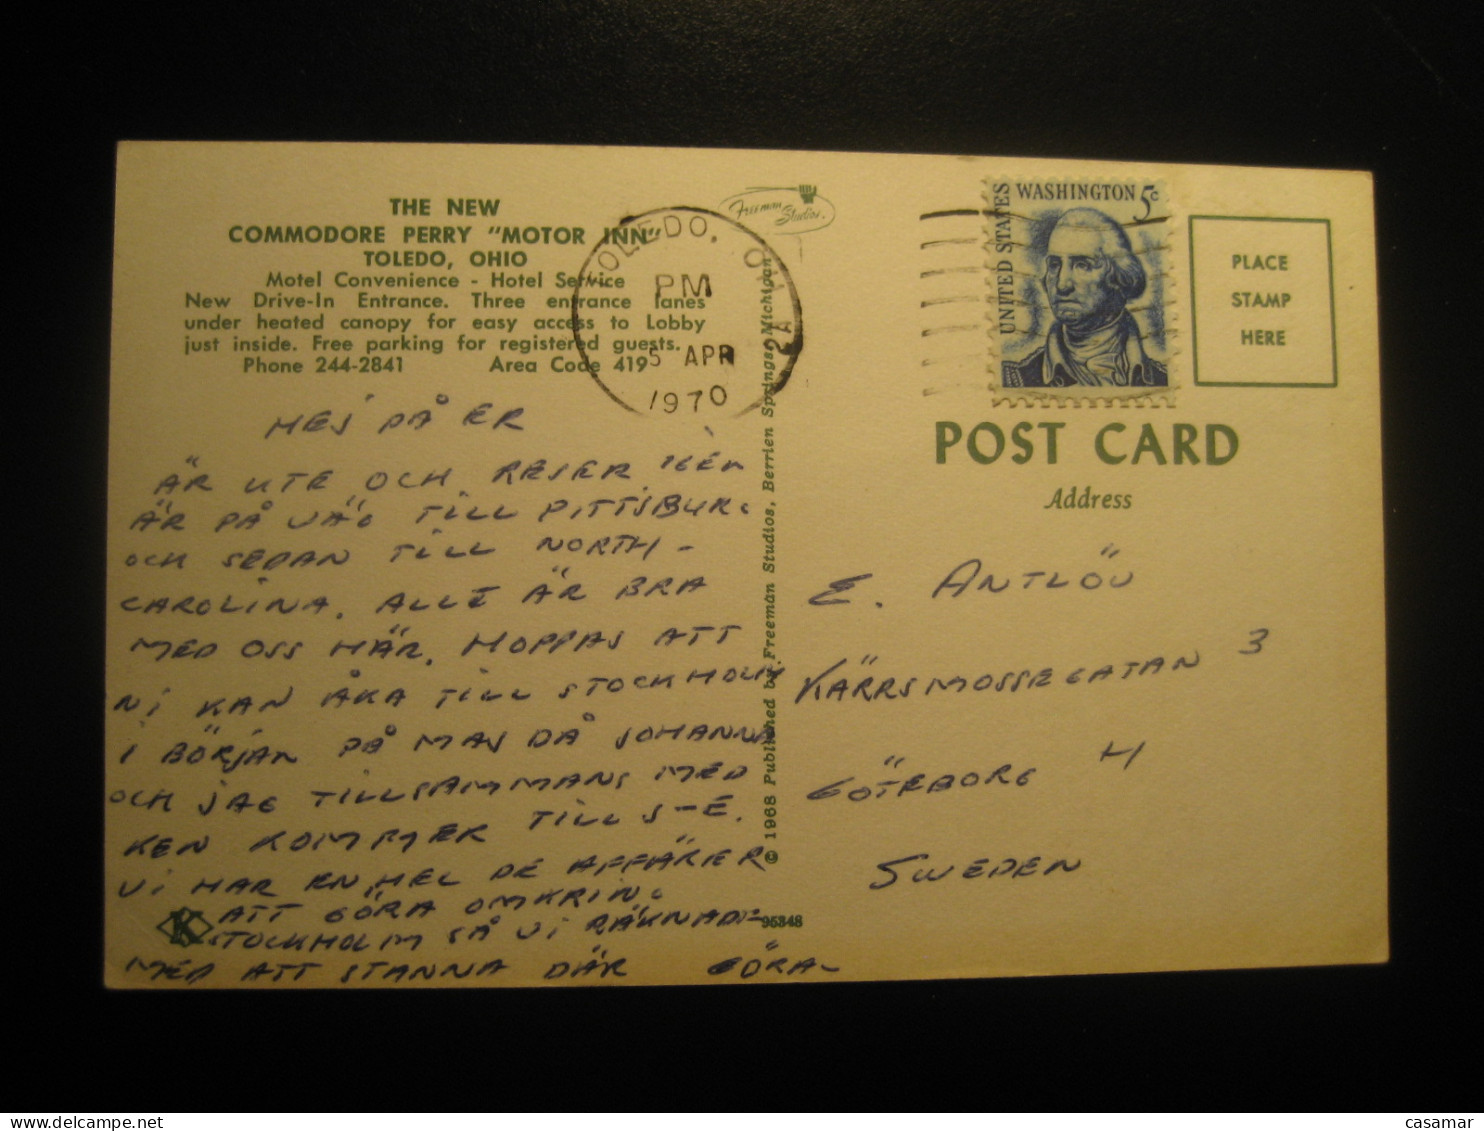 THE NEW
COMMODORE PERRY "MOTOR INN"
TOLEDO, OHIO
Motel Convenience - Hotel Service
New Drive-In Entrance. Three entrance lanes
under heated canopy for easy access to Lobby
just inside. Free parking for registered guests.
Phone 244-2841 Area Code 419
Freeman
Studios.
TOLEDO, OH
PM
5 APR
1970
HEJ PÅ ER
ÄR UTE OCH RESER IGEN
ÄR PÅ VÄG TILL PITTSBURG
OCH SEDAN TILL NORTH-
CAROLINA. ALLT ÄR BRA
MED OSS HÄR. HOPPAS ATT
NI KAN ÅKA TILL STOCKHOLM
I BÖRJAN PÅ MAJ DÅ JOHANNA
OCH JAG TILLSAMMANS MED
KEN KOMMER TILL S-E.
VI HAR EN HEL DE AFFÄRER
ATT GÖRA OMKRING
STOCKHOLM SÅ VI RÄKNADE
MED ATT STANNA DÄR GÖRA-
K
95348
© 1968 Published by Freeman Studios, Berrien Springs, Michigan
UNITED STATES
WASHINGTON 5c
PLACE
STAMP
HERE
POST CARD
Address
E. ANTLÖV
KÄRRSMOSSEGATAN 3
GÖTEBORG H
SWEDEN
delcampe.net
casamar